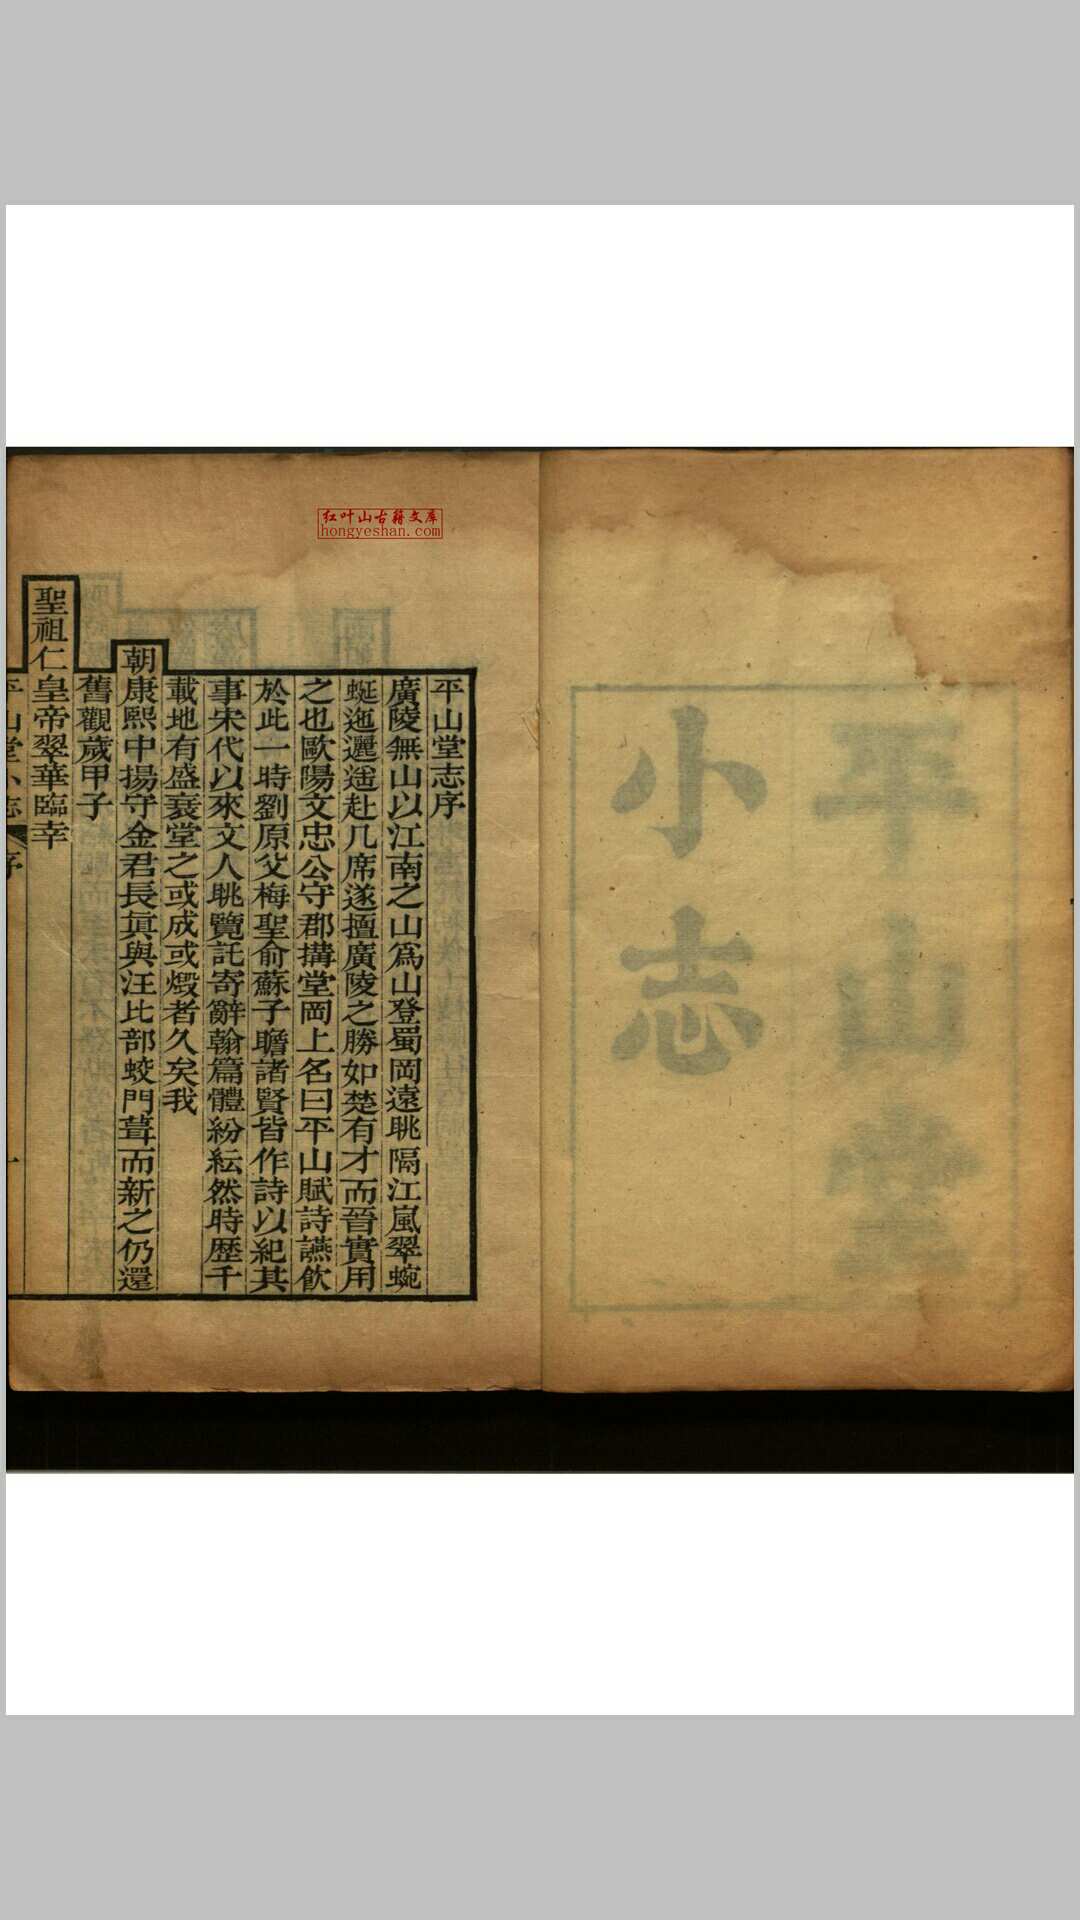 红叶山古籍文库
hongyeshan.com
平山堂
小志
平山堂志序
廣陵無山以江南之山爲山登蜀岡遠眺隔江嵐翠蜿
蜒迤邐遥赴几席遂擅廣陵之勝如楚有才而晉實用
之也歐陽文忠公守郡搆堂岡上名曰平山賦詩讌飲
於此一時劉原父梅聖俞蘇子瞻諸賢皆作詩以紀其
事宋代以來文人眺覽託寄辭翰篇體紛紜然時歷千
載地有盛衰堂之或成或燬者久矣我
朝康熙中揚守金君長眞與汪比部蛟門葺而新之仍還
舊觀歲甲子
聖祖仁皇帝翠華臨幸
平山堂小志 序 一